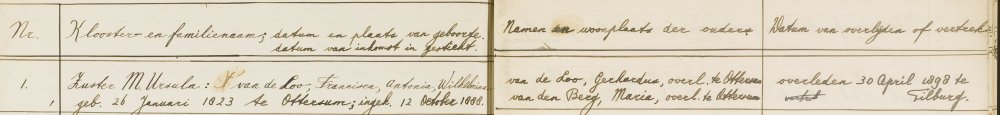 Nr. Klooster- en familienaam; datum en plaats van geboorte. Namen en woonplaats der ouders Datum van overlijden of vertrek
datum van inkomst in gesticht.
1. Zuster M. Ursula: van de Loo, Francisca, Antonia, Wilhelmina van de Loo, Gerhardus, overl. te Ottersum overleden 30 April 1898 te
1 geb. 26 Januari 1823 te Ottersum; ingek. 12 October 1888. van den Berg, Maria, overl. te Ottersum Tilburg.